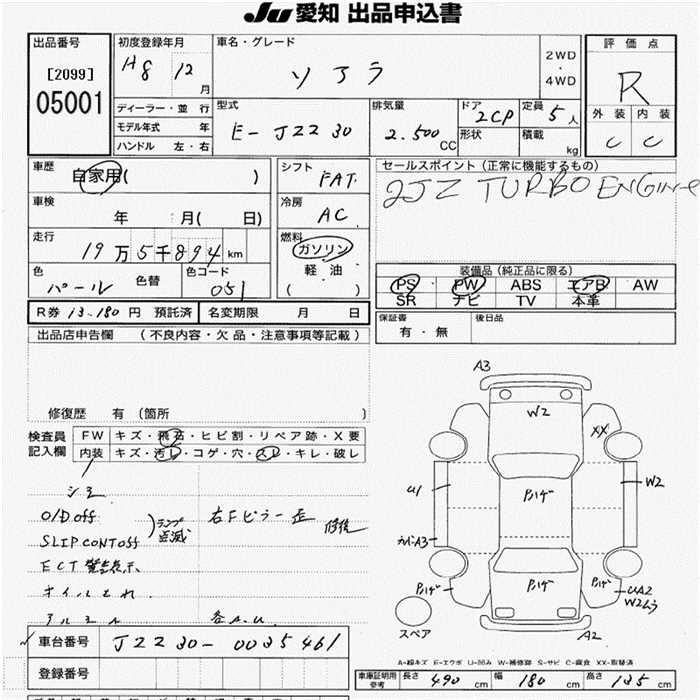 JU 愛知 出品申込書
出品番号 初度登録年月 車名・グレード 2WD・4WD 評価点
[2099] H8 12月 ソアラ R
05001 ディーラー・並行 型式 排気量 ドア 2CP 定員 5人 外装 内装
モデル年式 年 E-JZZ30 2.500CC 形状 積載 kg C C
ハンドル 左・右
車歴 自家用( ) シフト FAT セールスポイント(正常に機能するもの)
車検 年 月( 日) 冷房 AC 2JZ TURBO ENGINE
走行 19万5千894km 燃料 ガソリン
軽油
( )
色 パール 色替 色コード 051 装備品(純正品に限る)
PS PW ABS エアB AW
SR ナビ TV 本革
R券 13.180円 預託済 名変期限 月 日 保証書 有・無 後日品
出品店申告欄 (不良内容・欠品・注意事項等記載)
修復歴 有 (箇所 )
検査員記入欄 FW キズ・飛石・ヒビ割・リペア跡・X要
内装 キズ・汚れ・コゲ・穴・スレ・キレ・破レ
シミ
O/D off
SLIP CONT off
ランプ点滅
右Fピラー歪 修後
ECT 警告表示
オイルもれ
各A.U.
A3
W2
XX
U1
W2
A3
UA2
W2ムラ
A2
スペア
A-線キズ E-エクボ U-凹み W-補修跡 S-サビ C-腐食 XX-取替済
車台番号 JZZ30-0035461
登録番号
車庫証明用参考 長さ 490cm 幅 180cm 高さ 135cm